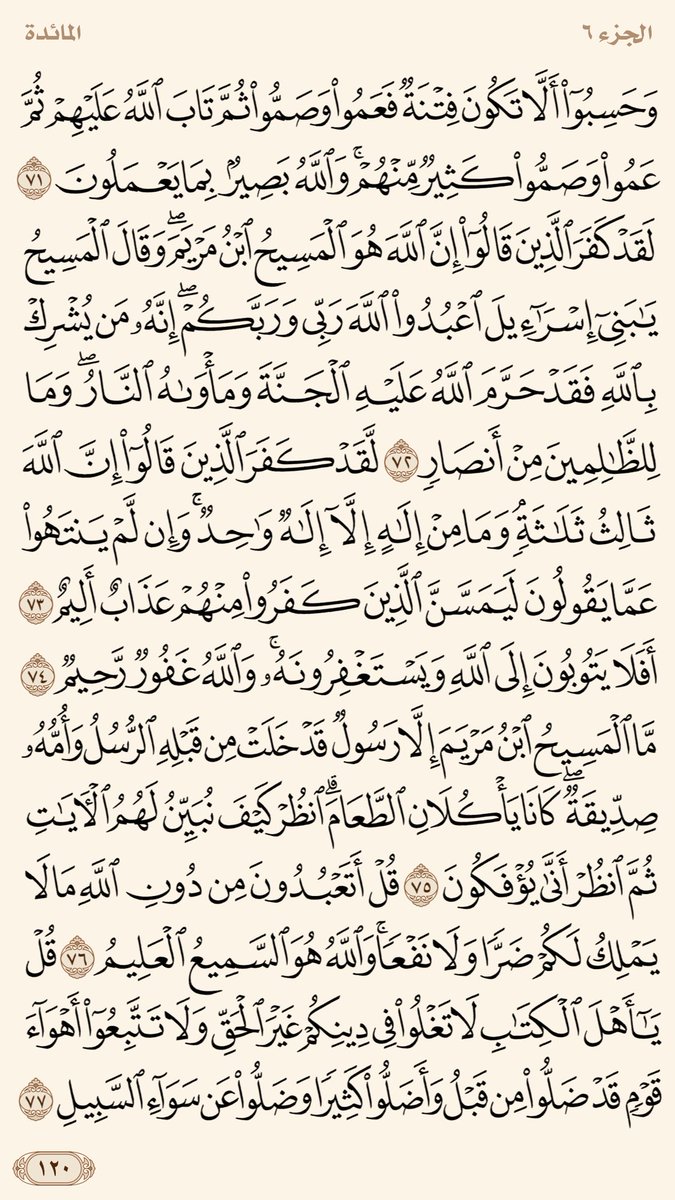 الجزء ٦
المائدة
وَحَسِبُوٓا۟ أَلَّا تَكُونَ فِتْنَةٌ فَعَمُوا۟ وَصَمُّوا۟ ثُمَّ تَابَ ٱللَّهُ عَلَيْهِمْ ثُمَّ
عَمُوا۟ وَصَمُّوا۟ كَثِيرٌ مِّنْهُمْ ۚ وَٱللَّهُ بَصِيرٌۢ بِمَا يَعْمَلُونَ ٧١
لَقَدْ كَفَرَ ٱلَّذِينَ قَالُوٓا۟ إِنَّ ٱللَّهَ هُوَ ٱلْمَسِيحُ ٱبْنُ مَرْيَمَ ۖ وَقَالَ ٱلْمَسِيحُ
يَـٰبَنِىٓ إِسْرَٰٓءِيلَ ٱعْبُدُوا۟ ٱللَّهَ رَبِّى وَرَبَّكُمْ ۖ إِنَّهُۥ مَن يُشْرِكْ
بِٱللَّهِ فَقَدْ حَرَّمَ ٱللَّهُ عَلَيْهِ ٱلْجَنَّةَ وَمَأْوَىٰهُ ٱلنَّارُ ۖ وَمَا
لِلظَّـٰلِمِينَ مِنْ أَنصَارٍ ٧٢ لَّقَدْ كَفَرَ ٱلَّذِينَ قَالُوٓا۟ إِنَّ ٱللَّهَ
ثَالِثُ ثَلَـٰثَةٍ ۘ وَمَا مِنْ إِلَـٰهٍ إِلَّآ إِلَـٰهٌ وَٰحِدٌ ۚ وَإِن لَّمْ يَنتَهُوا۟
عَمَّا يَقُولُونَ لَيَمَسَّنَّ ٱلَّذِينَ كَفَرُوا۟ مِنْهُمْ عَذَابٌ أَلِيمٌ ٧٣
أَفَلَا يَتُوبُونَ إِلَى ٱللَّهِ وَيَسْتَغْفِرُونَهُۥ ۚ وَٱللَّهُ غَفُورٌ رَّحِيمٌ ٧٤
مَّا ٱلْمَسِيحُ ٱبْنُ مَرْيَمَ إِلَّا رَسُولٌ قَدْ خَلَتْ مِن قَبْلِهِ ٱلرُّسُلُ وَأُمُّهُۥ
صِدِّيقَةٌ ۖ كَانَا يَأْكُلَانِ ٱلطَّعَامَ ۗ ٱنظُرْ كَيْفَ نُبَيِّنُ لَهُمُ ٱلْـَٔايَـٰتِ
ثُمَّ ٱنظُرْ أَنَّىٰ يُؤْفَكُونَ ٧٥ قُلْ أَتَعْبُدُونَ مِن دُونِ ٱللَّهِ مَا لَا
يَمْلِكُ لَكُمْ ضَرًّا وَلَا نَفْعًا ۚ وَٱللَّهُ هُوَ ٱلسَّمِيعُ ٱلْعَلِيمُ ٧٦ قُلْ
يَـٰٓأَهْلَ ٱلْكِتَـٰبِ لَا تَغْلُوا۟ فِى دِينِكُمْ غَيْرَ ٱلْحَقِّ وَلَا تَتَّبِعُوٓا۟ أَهْوَآءَ
قَوْمٍ قَدْ ضَلُّوا۟ مِن قَبْلُ وَأَضَلُّوا۟ كَثِيرًا وَضَلُّوا۟ عَن سَوَآءِ ٱلسَّبِيلِ ٧٧
١٢٠